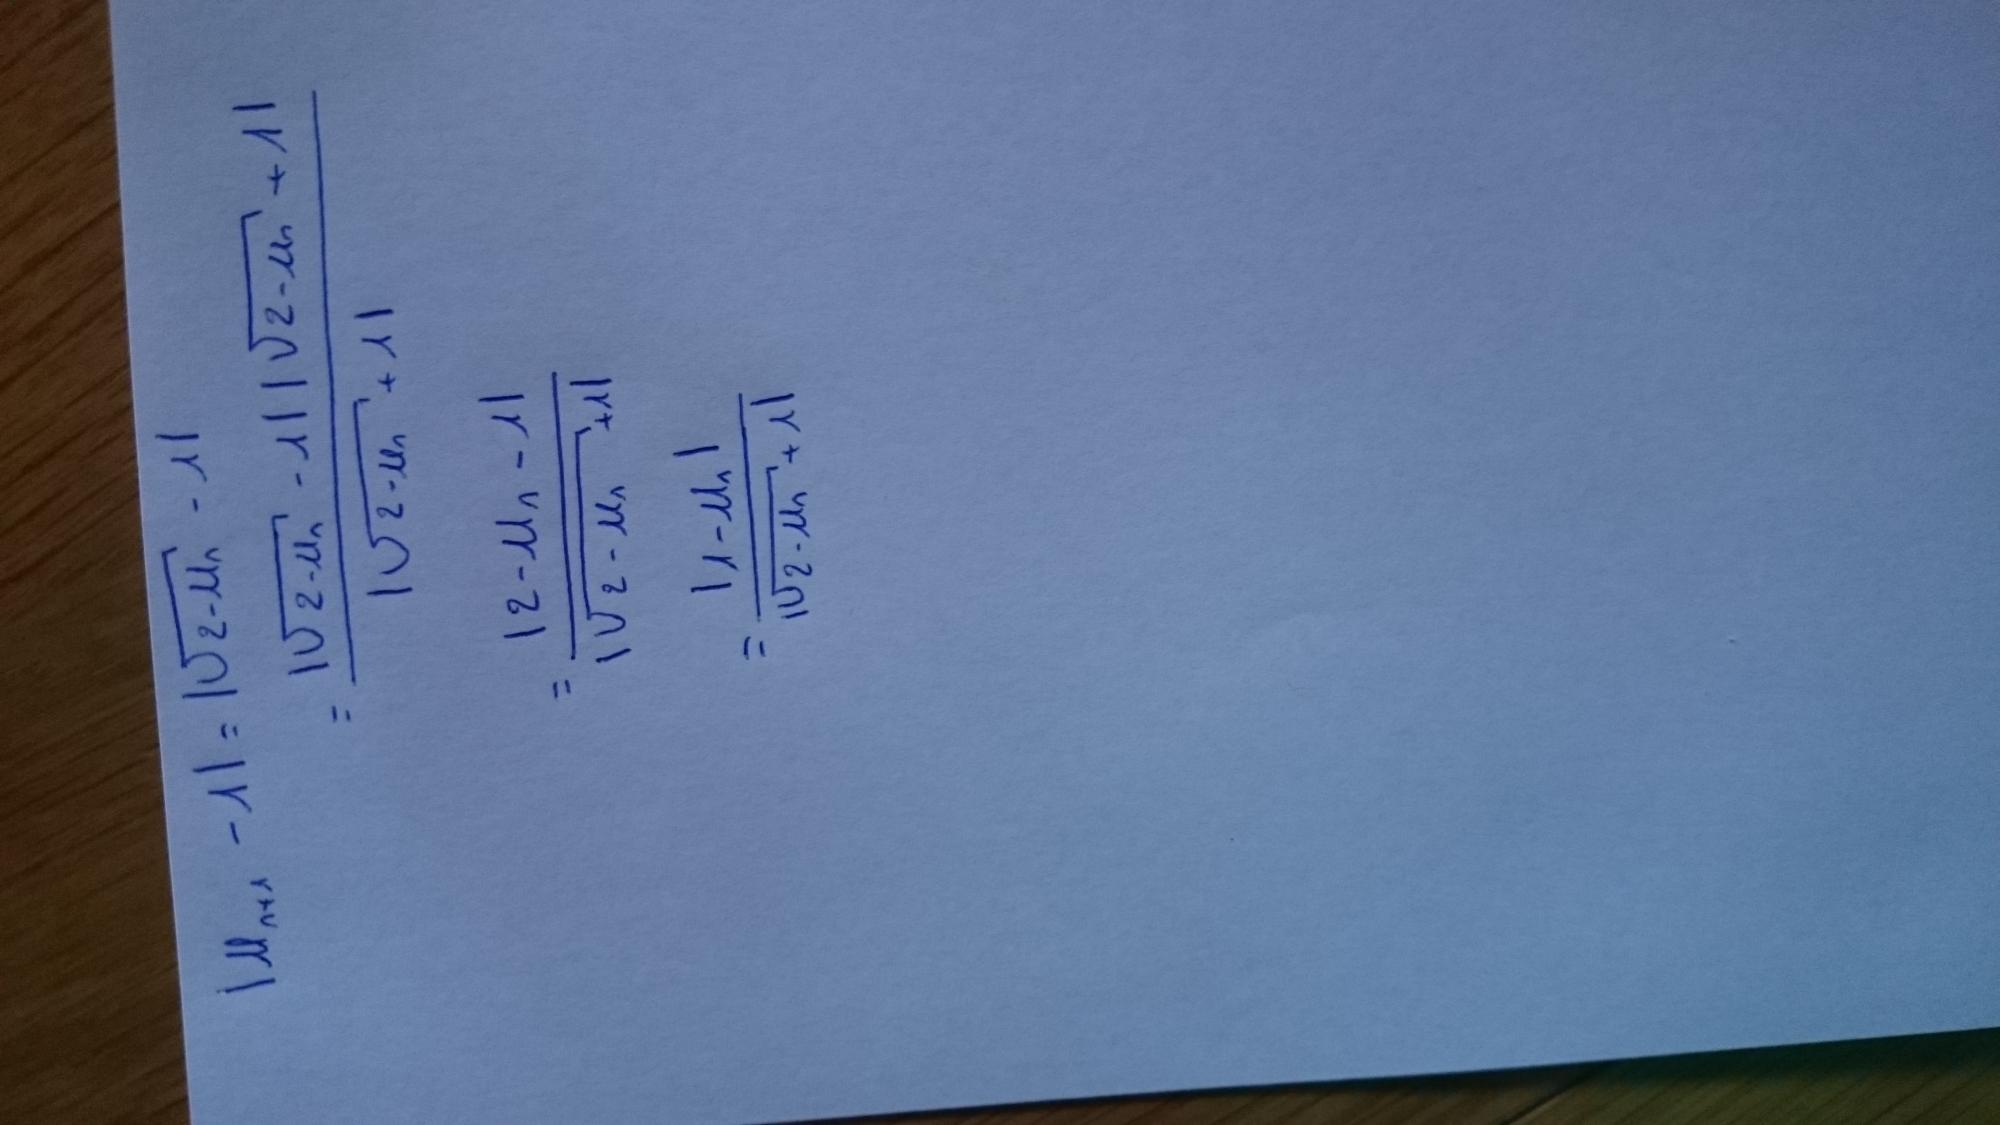 |u_{n+1} - 1| = |√(2-u_n) - 1|
= |√(2-u_n) - 1| |√(2-u_n) + 1| / |√(2-u_n) + 1|
= |2-u_n - 1| / |√(2-u_n) + 1|
= |1-u_n| / |√(2-u_n) + 1|